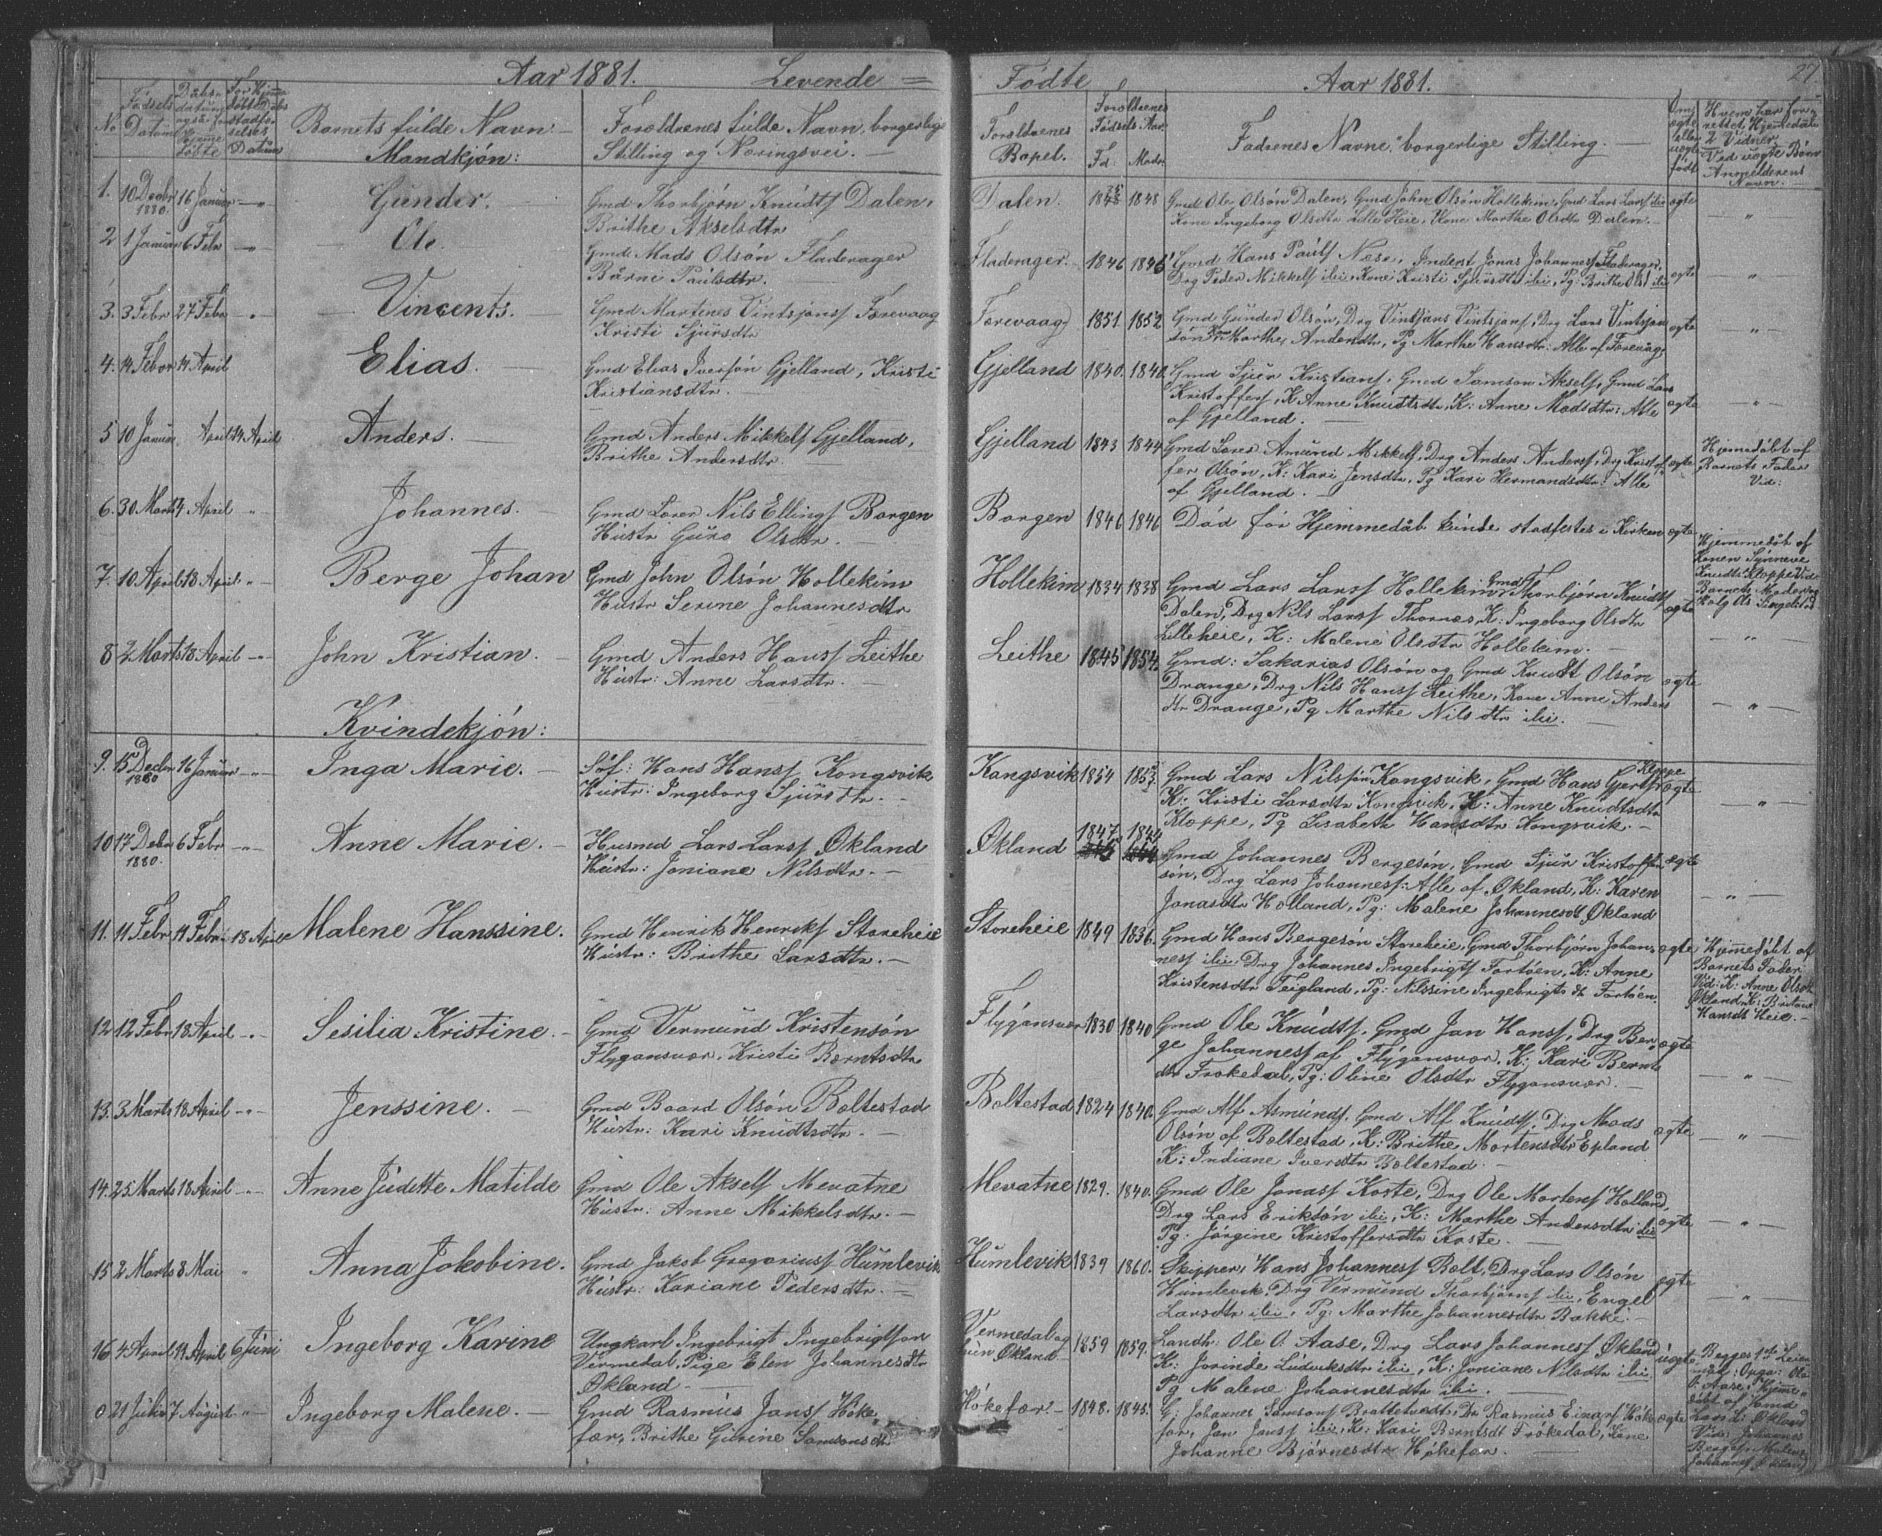 Aar 1881. Levende Fødte Aar 1881. 27
No Fødsels Datum
Barnets fulde Navn
Forældrenes fulde Navn, borgerlige Stilling og Næringsvei.
Forældrenes Bopel.
Forældrenes Fødsels Aar
Fd. Modr.
Faddrenes Navne, borgerlige Stilling.
Mandkjøn:
1. 10 Decbr 1880. 16 Januar Gunder.
Gmd Thorbjørn Knudts Dalen,
Brithe Akselsdtr
Dalen. 1848
Gmd Ole Olsøn Dalen, Gmd John Olsøn Hollekim, Gmd Lars Larss ibi
Kone Ingeborg Olsdtr Lille Heie, Kone Marthe Olsdtr Dalen.
ægte
2 1 Januar 6 Febr Ole.
Gmd Mads Olsøn Fladerager
Barni Paulsdtr.
Fladerager. 1846 1846
Gmd Hans Pauls Nese, Inderst Jonas Johannes Fladerager,
Drg Peder Mikkels ibi, Kone Kristi Sjursdtr ibi, Pg: Brithe Ols ibi
ægte
3. 3 Febr 27 Febr Vincents.
Gmd Martines Vintsjans Førevaag
Kristi Sjursdtr
Førevaag 1851 1852
Gmd Gunder Olsøn, Drg Vintjans Vintsjans, Drg Lars Vintsjan
søn Kone Marthe Andersdtr, Pg Marthe Hansdtr: Alle af Førevaag
ægte
4. 14 Febr 14 April Elias.
Gmd Elias Iversøn Gjelland, Kristi
Kristiansdtr.
Gjelland 1840. 1840.
Gmd Sjur Kristians, Gmd Samson Aksels, Gmd Lars
Kristoffers, K Anne Knudtsdtr, K: Anne Madsdtr: Alle
af Gjelland.
ægte
5 10 Januar April 14 April Anders.
Gmd Anders Mikkels Gjelland,
Brithe Andersdtr.
Gjelland 1843 1844
Gmd Lærer Amund Mikkels, Drg Anders Anders, Drg Kristof
fer Olsøn, K: Kari Jensdtr, Pg Kari Hermandsdtr: Alle
af Gjelland.
ægte
Hjemedøbt af
Barnets Fader
Vid:
6. 30 Marts 4 April Johannes.
Gmd Lærer Nils Ellings Borgen
Hustr Guro Olsdtr.
Borgen 1846 1846
Død før Hjemmedåb kunde stadfestes i Kirken
ægte
7. 10 April 18 April Berge Johan
Gmd John Olsøn Hollekim
Hustr Serine Johannesdtr
Hollekim 1834 1838
Gmd Lars Larss Hollekim, Gmd Thorbjørn Knudts
Dalen, Drg Nils Larss Thornes, K: Ingeborg Olsdtr
Lilleheie, K: Malene Olsdtr Hollekim.
ægte
Hjemmedøbt af
Konen Synneve
8 2 Marts 18 April John Kristian.
Gmd Anders Hanss Leithe
Hustr: Anne Larsdtr.
Leithe 1845 1854.
Gmd: Sakarias Olsøn og Gmd Knudt Olsøn
Drange, Drg Nils Hanss Leithe, Kone Anne Anders
dtr Drange, Pg Marthe Nilsdtr ibi.
ægte
Kvindekjøn:
9. 15 Decbr 1880 16 Januar Inga Marie.
Søf: Hans Hanss Kongsvik
Hustr: Ingeborg Sjursdtr.
Kongsvik 1854 1853
Gmd Lars Nilssøn Kongsvik, Gmd Hans Gjerts Kloppe
K: Kristi Larsdtr Kongsvik, K: Anne Knudtsdtr
Kloppe, Pg Lisabeth Hansdtr Kongsvik.
ægte
10 17 Decbr 1880. 6 Febr Anne Marie.
Husmd Lars Larss Økland
Hustr: Joniane Nilsdtr.
Økland 1847 1844
Gmd Johannes Bergesøn, Gmd Sjur Kristoffer
søn, Drg Lars Johanness: Alle af Økland, K: Karen
Jonasdtr Holland, Pg: Malene Johannesdt Økland
ægte
11. 11 Febr 14 Febr 18 April Malene Hanssine.
Gmd Henrik Henriks Storeheie
Hustr: Brithe Larsdtr.
Storeheie 1849 1836.
Gmd Hans Bergesøn Storeheie, Gmd Thorbjørn Johan-
ness ibi, Drg Johannes Ingebrigts Fortøen, K: Anne
Kristensdtr Teigland, Pg: Nilssine Ingebrigtsdt Fortøen.
ægte
Hjemedøbt af
Barnets Fader:
Vid: K: Anne Olsdt
Økland, K: Britane
Hansdt Heie.
12 12 Febr 18 April Sesilia Kristine.
Gmd Vermund Kristensøn
Flygansvær, Kristi Berntsdtr
Flygansvær 1830 1840
Gmd Ole Knudts, Gmd Jan Hanss, Drg Ber-
ge Johanness af Flygansvær, K: Kari Bernts
dtr Frøkedal, Pg: Oline Olsdtr Flygansvær.
ægte
13. 3 Marts 18 April Jenssine.
Gmd Baard Olsøn Boltestad
Hustr: Kari Knudtsdtr.
Boltestad 1824 1840.
Gmd Alf Asmunds, Gmd Alf Knudts, Drg Mads
Olsøn af Boltestad, K: Brithe Mortensdtr Epland
K: Indiane Iversdtr Boltestad.
ægte
14. 25 Marts 18 April Anne Judette Matilde
Gmd Ole Aksels Mevatne
Hustr: Anne Mikkelsdtr.
Mevatne 1829. 1840.
Gmd Ole Jonass Koste, Drg Ole Mortens Holland,
Drg Lars Eriksøn ibi, K: Marthe Andersdtr ibi
Pg: Jørgine Kristoffersdtr Koste.
ægte
15 2 Marts 8 Mai Anna Jokobine.
Gmd Jakob Gregorius Humlevik
Hustr: Kariane Pedersdtr.
Humlevik 1839 1860.
Skipper, Hans Johanness Bolt, Drg Lars Olsøn
Humlevik, Drg Vermund Thorbjørns ibi, Engel
Larsdtr ibi, Pg: Marthe Johannesdtr Bakke.
ægte
16 4 April 14 April 6 Juni Ingeborg Karine
Ungkarl Ingebrigt Ingebrigtsøn
Vermedal, Pige Elen Johannesdtr
Økland.
Vermedal og
Økland 1859 1859.
Landh: Ole O. Aase, Drg Lars Johannes Økland
K: Jorinde Ludviksdtr ibi, K: Joniane Nilsdtr ibi
Pg Malene Johannesdtr ibi.
uægte
Begges 1st Leier
maal: Opgr: Ole
O. Aase: Hjeme
døbt af Gmd
Lars L: Økland
Vid: Johannes
Berges, Malene
Johannes Økland
0 21 Julii 7 August Ingeborg Malene.
Gmd Rasmus Janss Høke-
fær, Brithe Gurine Samsonsdtr
Høkefær 1848. 1845.
G: Johannes Samsons Brattetvedt, Dr Rasmus Einars Høke
fær, Jan Janss ibi, K: Kari Berntsdt Frøkedal, Kone
Johanne Bjørnesdtr Høkefær.
ægte